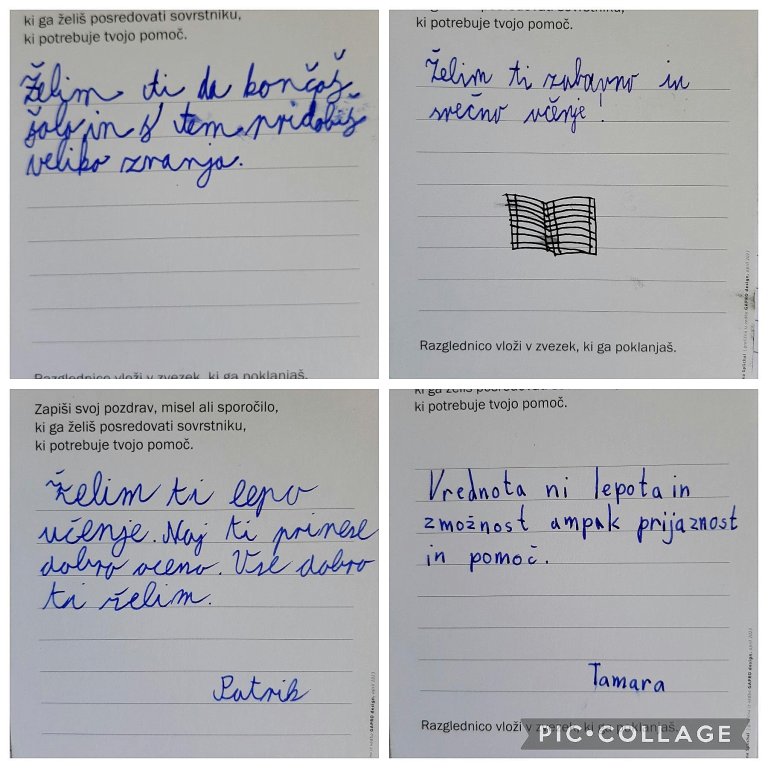 ki ga želiš posredovati sovrstniku,
ki potrebuje tvojo pomoč.
Želim ti da končaš
šolo in s tem pridobiš
veliko znanja.
Razglednico vloži v zvezek, ki ga poklanjaš.
ki potrebuje tvojo pomoč.
Želim ti zabavno in
srečno učenje!
Razglednico vloži v zvezek, ki ga poklanjaš.
Zapiši svoj pozdrav, misel ali sporočilo,
ki ga želiš posredovati sovrstniku,
ki potrebuje tvojo pomoč.
Želim ti lepo
učenje. Naj ti prinese
dobro oceno. Vse dobro
ti želim.
Patrik
ki ga želiš posredovati
ki potrebuje tvojo pomoč.
Vrednota ni lepota in
zmožnost ampak prijaznost
in pomoč.
Tamara
Razglednico vloži v zvezek, ki ga poklanjaš.
PIC•COLLAGE